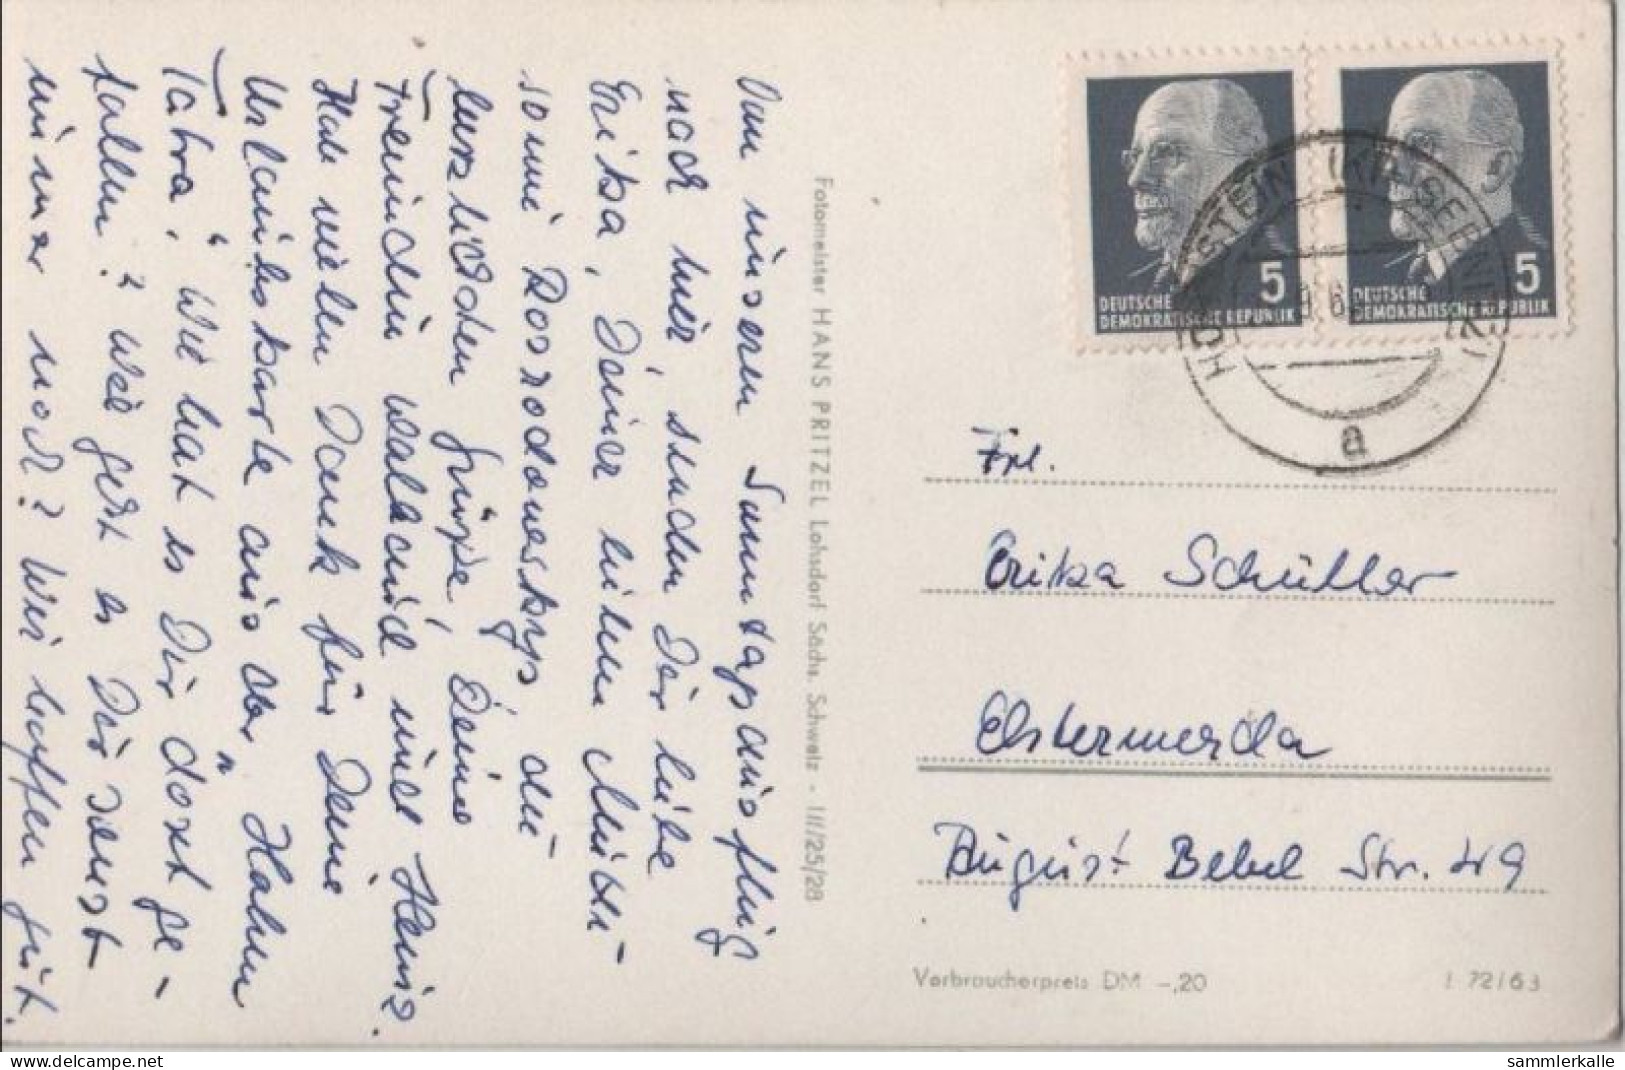 Von unserm Sonntagsausflug
nach hier, senden Dir liebe
Erika, Deiner lieben Mutti
sowie die
herzlichsten Grüße, Deine
Freundin und Heinz.
Hab vielen Dank für Deine
Urlaubskarte aus der „Hohen
Tatra“, Wie hat es Dir dort ge-
fallen? Wie geht es Dir sonst
immer noch? Wir hoffen gut.
Fotomeister HANS PRITZEL Lohsdorf Sächs. Schweiz - III/25/28
5
DEUTSCHE
DEMOKRATISCHE REPUBLIK
5
DEUTSCHE
DEMOKRATISCHE REPUBLIK
HOHNSTEIN (KR SEBNITZ)
a
Frl.
Erika Schüller
Elsterwerda
August Bebel Str. 49
Verbraucherpreis DM -,20
I 72/63
www.delcampe.net
sammlerkalle